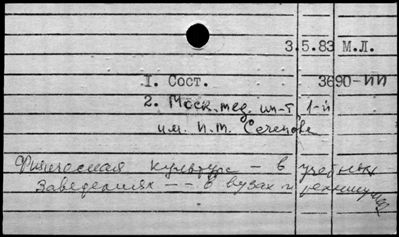 3.5.83 М.Л.
1. Сост. 3690-ИИ
2. Моск. мед. ин-т, 1-й
им. И.М. Сеченова
Физическая культура - в учебных
заведениях -- в вузах и